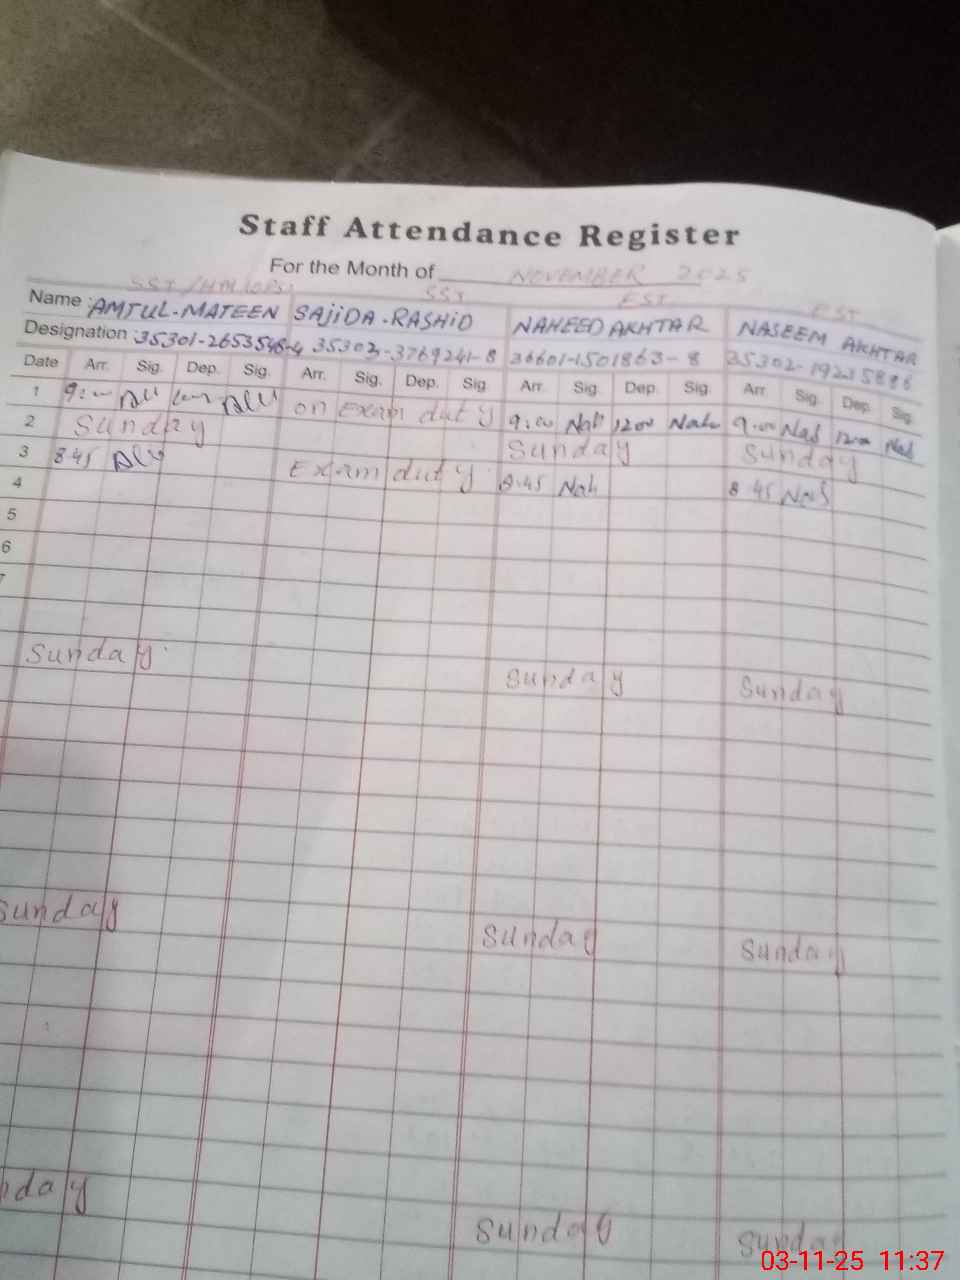 Staff Attendance Register
For the Month of NOVEMBER 2025
SST SST EST EST
Name: AMTUL-MATEEN SAJIDA-RASHID NAHEED AKHTAR NASEEM AKHTAR
Designation: 35301-2653546-4 35303-3769241-8 36601-1501863-8
Date Arr. Sig. Dep. Sig. Arr. Sig. Dep. Sig Arr. Sig. Dep. Sig. Arr Sig. Dep. Sig.
1 9:00 on Exam duty 9:00 Nah 1200 Nah 9:00 Nas 1200 Nas
2 Sunday Sunday Sunday
3 8 45 Exam duty 8.45 Nah 8 45 Nas
4
5
6
7
Sunday Sunday Sunday
Sunday Sunday Sunday
nday Sunday Sunday
03-11-25 11:37